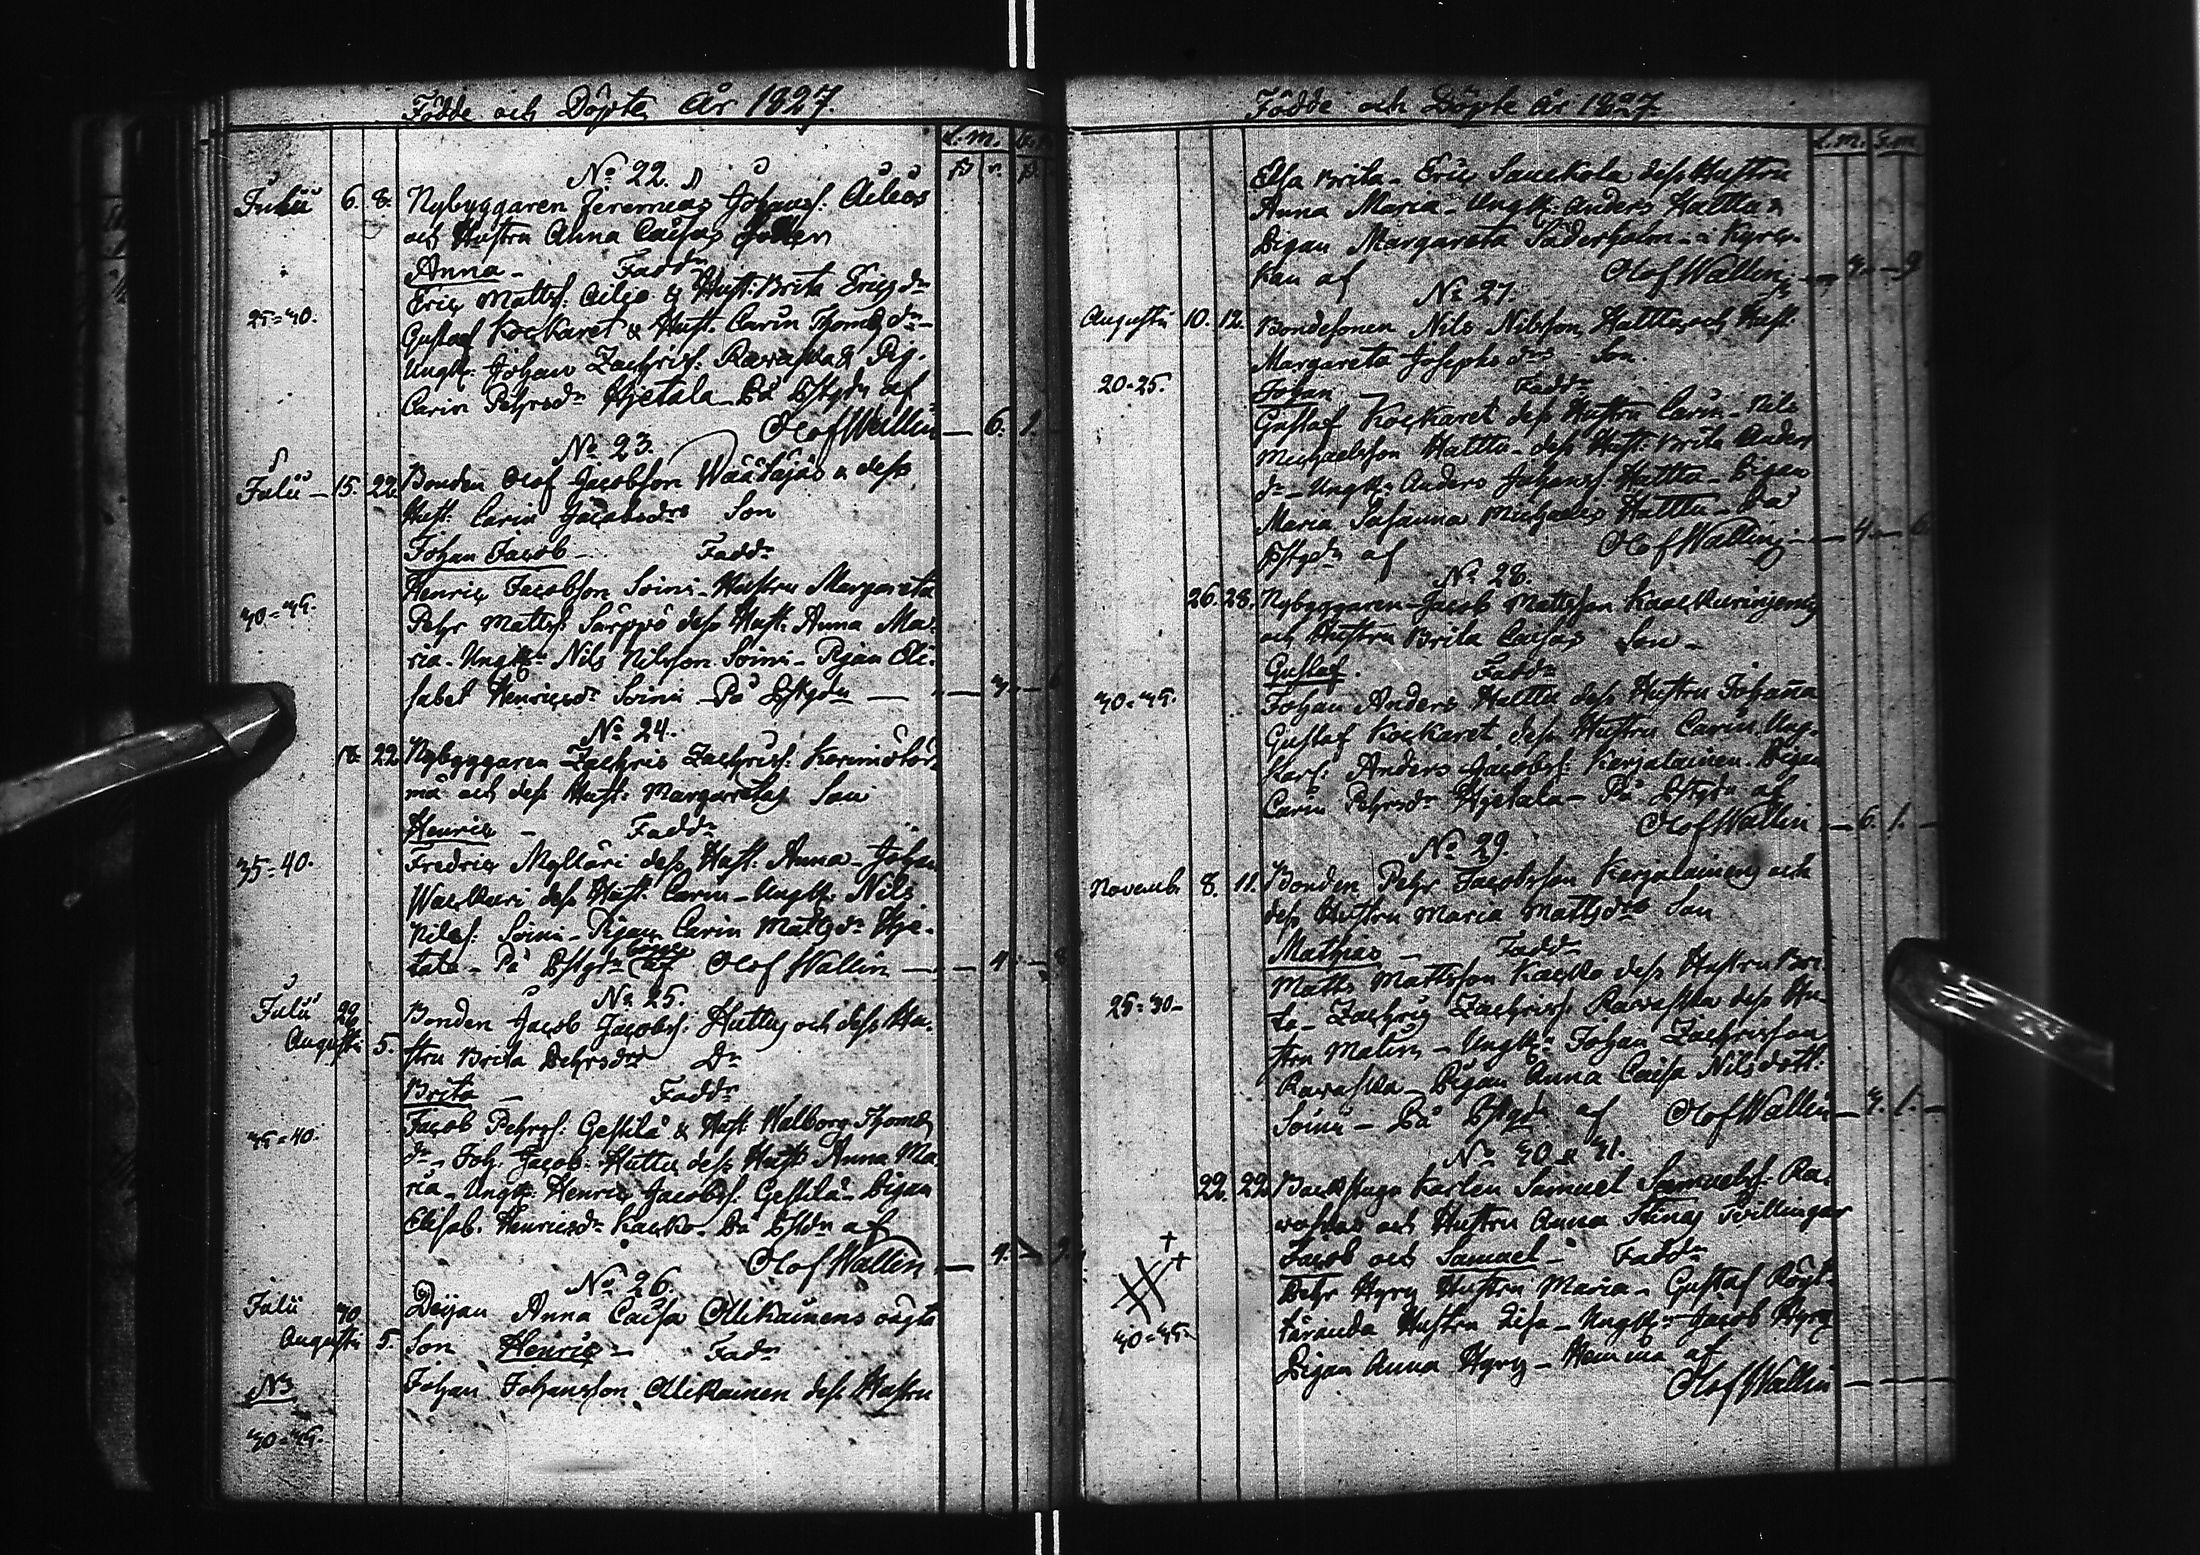 Födde och Döpte år 1827.
S. m.
No 22.
Julii 6. 8. Nybyggaren Jeremias Johanss:
och Hustru Anna Caisas
Anna - Fadd:r
Eric Mattss: & Hust: Brita Ericsdr
25=30. Gustaf Kockaret & Hust. Carin Thomædr
Ungk: Johan Zachriss: Rawaska & Pig.
Carin Pehrsdr Hjetala - På Pstgdn af
Olof Wallin - 6. 1.
No 23.
Julii - 15. 22. Bonden Olof Jacobsson Wäätäjäs & dess
Hust: Carin Jacobsdrs Son
Johan Jacob - Fadd:r
Henric Jacobsson Soini - Hustru Margareta
30=35. Pehr Mattss: dess Hust: Anna Ma-
ria - Ungk: Nils Nilsson Soini - Pigan Eli-
sabet Henricsdr Soini - På Pstgdn
No 24.
18. 22. Nybyggaren Zachris Zachriss:
mä och dess Hust: Margaretas Son
Henric - Fadd:r
35=40. Fredric Mylläri dess Hust: Anna - Johan
dess Hust: Carin - Ungk: Nils
Nilss: Soini - Pigan Carin Mattsdr Hje-
tala - På Pstgdn af Olof Wallin
No 25.
Julii 29. Bonden Jacob Jacobss: Huttus och dess Hu-
Augusti 5. stru Brita Pehrsdrs Dr
Brita - Fadd:r
Jacob Pehrss: Gestilä & Hust: Walborg Thomæ
35=40. dr - Joh. Jacob: Huttu dess Hust: Anna Ma-
ria - Ungk: Henric Jacobss: Gestilä - Pigan
Elisab. Henricsdr Kacko. På Pstdn af
Olof Wallin
No 26.
Julii 30. Pigan Anna Caisa Ollikainens oägta
Augusti 5. Son Henric - Fadd:r
N3 Johan Johansson Ollikainen dess Hustru
30=35.
Födde och Döpte år 1827.
S. m. S. m
Elsa Brita - Eric Sauckola dess Hustru
Anna Maria - Ungk: Anders Hattu &
Pigan Margareta Söderholm - i Kyrc-
kan af Olof Wallin
No 27.
Augusti 10. 12. Bondesonen Nils Nilsson Hattu och Hust:
Margareta Josephsdrs Son.
20=25. Johan - Fadd:r
Gustaf Kockaret dess Hustru Carin - Nils
Michaelsson Hattu - dess Hust: Brita Anders
dr - Ungk: Anders Johanss: Hattu - Pigan
Maria Susanna Michaelsdr Hattu - På
Pstgdn af Olof Wallin
No 28.
26. 28. Nybyggaren Jacob Mattsson
och Hustru Brita Caisas Son -
Gustaf. Fadd:r
30=35. Johan Anders Hattu dess Hustru Johanna
Gustaf Kockaret dess Hustru Carin. Ung-
Karl: Anders Jacobss: Karjalainen. Pigan
Carin Pehrsdr Hjetala - På Pstgdn af
Olof Wallin - 6. 1. -
No 29.
Novemb. 8. 11. Bonden Pehr Jacobsson Karjalainens och
dess Hustru Maria Mattsdrs Son
Mathias - Fadd:r
Matts Mattsson Kacko dess Hustru Bri-
25=30 - ta - Zachris Zachriss: Rawaska dess Hu-
stru Malin - Ungk: Johan Zachrisson
Rawaska - Pigan Anna Caisa Nilsdott:
Soini - På Pstgdn af Olof Wallin
No 30 & 31.
22. 22. Backstugu Karlen Samuel Samuelss: Ra-
waskas och Hustru Anna Stinas Tvillingar
Jacob och Samuel - Fadd:r
Pehr Hyry Hustru Maria - Gustaf
30=35. Hustru Lisa - Ungk: Jacob Hyry
Pigan Anna Hyry - Hemma af
Olof Wallin